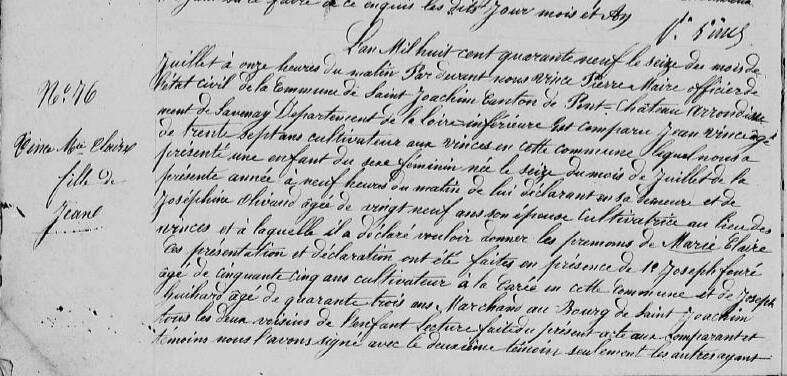 de ce enquis les dits Jour mois et An
L'an Mil huit cent quarante neuf le seize du mois de
Juillet à onze heures du matin Par devant nous Vince Pierre Maire officier de
l'état civil de la Commune de Saint Joachim Canton de Pont-Château arrondisse
ment de Savenay Département de la loire-inférieure Est comparu Jean Vince agé
de trente sept ans cultivateur aux vinces en cette commune lequel nous a
présenté une enfant du sexe féminin née le seize du mois de Juillet de la
présente année à neuf heures du matin de lui déclarant en sa demeure et de
Joséphine agée de vingt neuf ans son épouse Cultivatrice au lieu des
vinces et à laquelle il a déclaré vouloir donner les prenoms de Marie Claire
Ces présentation et déclaration ont été faites en présence de 1° Joseph
âgé de cinquante cinq ans cultivateur à la en cette Commune et de Joseph
Guihard âgé de quarante trois ans Marchand au Bourg de Saint Joachim
tous les deux voisins de l'enfant Lecture faite du présent acte aux comparant et
témoins nous l'avons signé avec le deuxième témoin seulement les autres ayant
No. 76
Vince Mie Claire
fille de
Jean